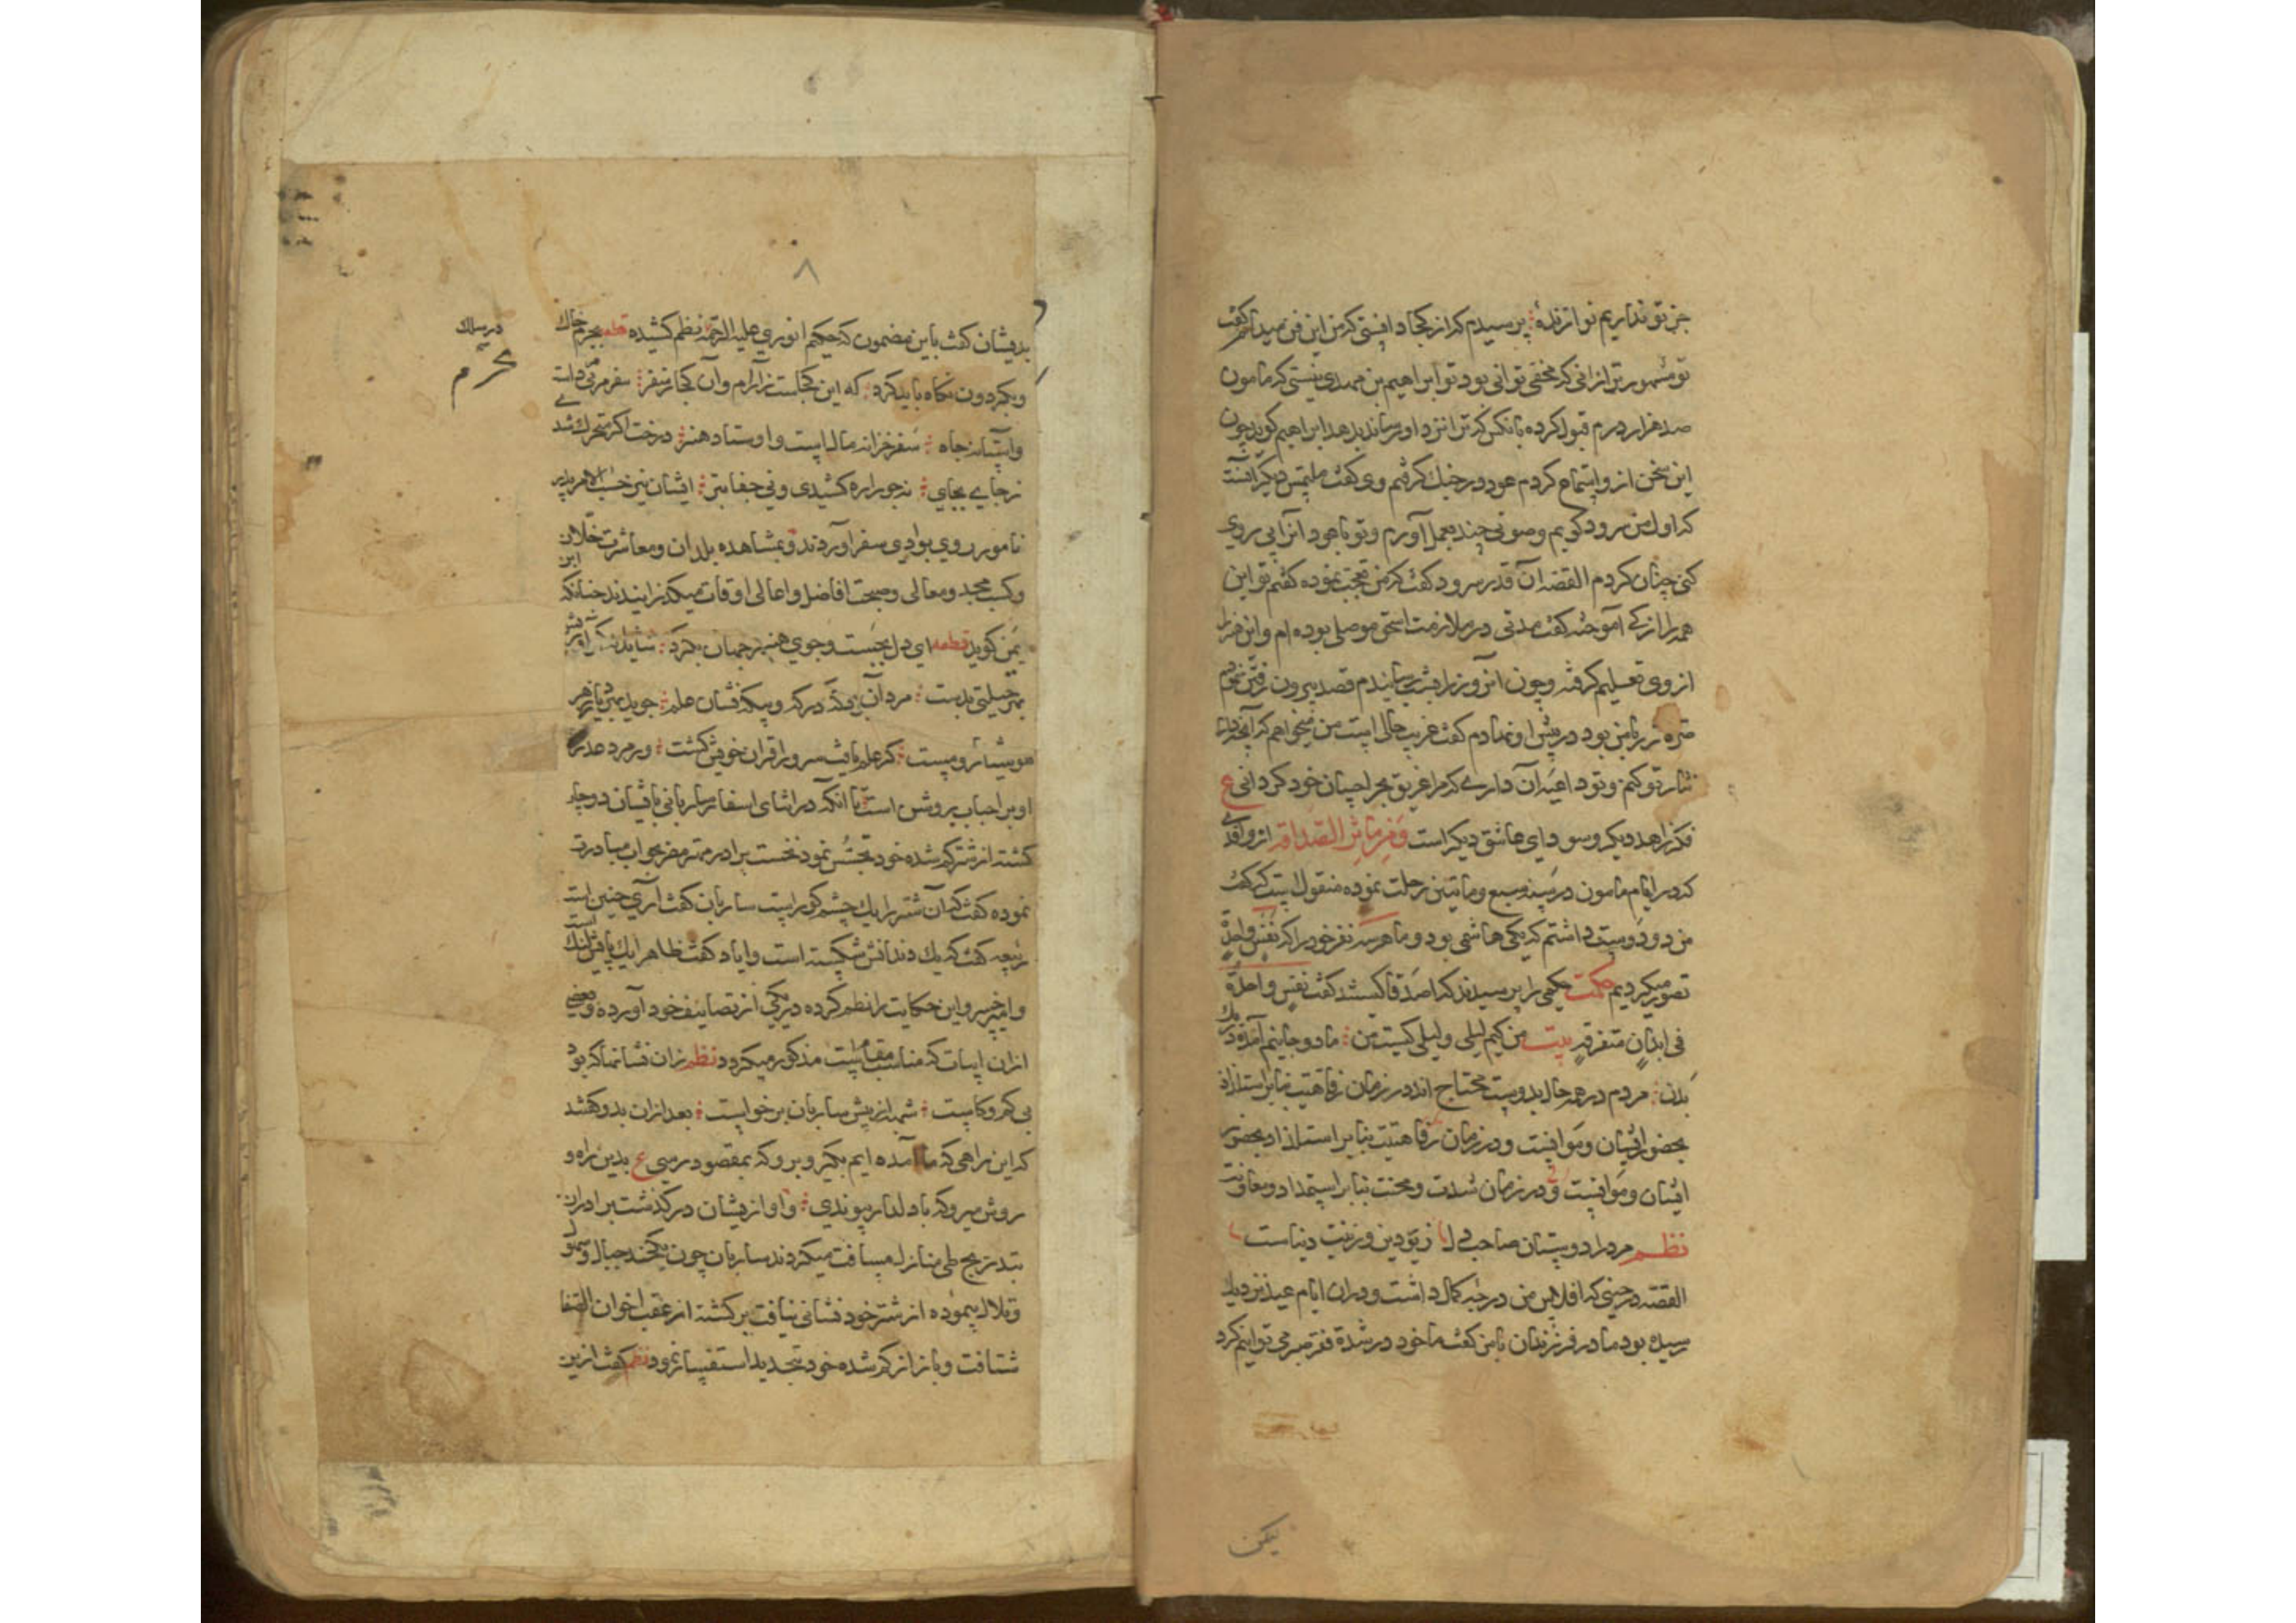 جز تو نداریم نوازنده پرسیدم که از کجا دانستی که من این فن میدانم گفت
تو مشهورتر از انی که مخفی توانی بود تو ابراهیم بن مهدی نیستی که مامون
صد هزار درم قبول کرده بانکس که ترا نزد او رساند بدهد ابراهیم گوید چون
این سخن از و استماع کردم عود در چنك گرفتم وی گفت ملتمس دیگر آنست
که اول من سرود گویم و صوتی چند بعمل آورم و تو با عود انرا پی روی
کنی چنان کردم القصه آن قدر سرود گفت که من تعجب نموده گفتم تو این
همه را از که آموخته گفت مدتی در ملازمت اسحق موصلی بوده ام و این
از وی تعلیم گرفته و چون انروز را بشب رسانیدم قصد بیرون رفتن
صره زر با من بود در پیش او نهادم گفت غریب حالی است من میخواهم که آنچه دارم
نثار تو کنم و تو داعیه آن داری که مرا غریق بحر احسان خود گردانی ع
فکر زاهد دیگر و سودای عاشق دیگر است و فرمایش الصداقه از واقدی
که در ایام مامون در سنه سبع و ماتین رحلت نموده منقول است که گفت
من دو دوست داشتم که یکی هاشمی بود و ما هر سه نفر خود را که نفس واحدة
تصور میکردیم حکمت حکیمی را پرسیدند که اصدقا کیستند گفت نفس واحدة
فی ابدان متفرقه بیت من کیم لیلی و لیلی کیست من ما دو جانیم آمده در یك
بدن مردم در همه حال بدوست محتاج اند در زمان رفاهیت بنابر استلذاذ
بحضور ایشان و موانست و در زمان رفاهیت بنابر استلذاذ بحضور
ایشان و موانست و در زمان شدت و محنت بنابر استمداد و معاونت
نظم مرد را دوستان صاحب دل زیور دین و زینت دنیاست
القصه در حینی که افلاس من درجه کمال داشت و دران ایام عید نزدیك
رسیده بود مادر فرزندان با من گفت ما خود در شدة فقر صبر می توانیم کرد
لیکن
٨
بدیشان گفت باین مضمون که حکیم انوری علیه الرحمه نظم کشیده قطعه بجرم خاك
و بگردون نگاه باید کرد که این کجاست ز آرام و آن کجا ز سفر سفر مربی
در ساك
و آستانه جاه سفر خزانه مال است و اوستاد هنر درخت اگر متحرك شدی
ز جای بجای نه جور اره کشیدی و نی جفای تبر ایشان نیز حسب الامر پدر
نامور روی بوادی سفر آوردند و بمشاهده بلدان و معاشرت خلان
و کسب مجد و معالی و صحبت افاضل و اعالی اوقات میگذرانیدند چنانکه ابن
یمین گوید قطعه ای دل بجست و جوی هنر در جهان بگرد شاید
بهر حیلتی بدست مرد آن بود که در که و بیگه نشان علم جوید
هوشیار و مست گر علم یافت سرور اقران خویش گشت ور مرد عذر
او بر احباب روشن است تا آنکه در اثنای اسفار ساربانی بایشان دوچار
گشته از شتر گم شده خود تجسس نمود نخست برادر مهتر مضر بجواب مبادرت
نموده گفت که آن شتر را یك چشم کور است ساربان گفت آری چنین است
ربیعه گفت که یك دندانش شکسته است و ایاد گفت ظاهرا یك پایش لنك است
و امیر خسرو این حکایت را نظم کرده در یکی از تصانیف خود آورده و بعضی
ازان ابیات که مناسب مقام است مذکور میگردد نظم زان نشانها که بود
بی کم و کاست شبهه از پیش ساربان برخواست بعد ازان بدو گفتند
که این راهی که ما آمده ایم بگیر و برو که بمقصود رسی ع بدین راه و
روش میرو که با دلدار پیوندی و او ازیشان درگذشت برادران
بتدریج طی منازل مسافت میکردند ساربان چون یکچند جبال و سهول
و تلال پیموده از شتر خود نشانی نیافت برگشته از عقب اخوان الصفا
شتافت و باز از گم شده خود بتجدید استفسار نمود نظم گفت ازین